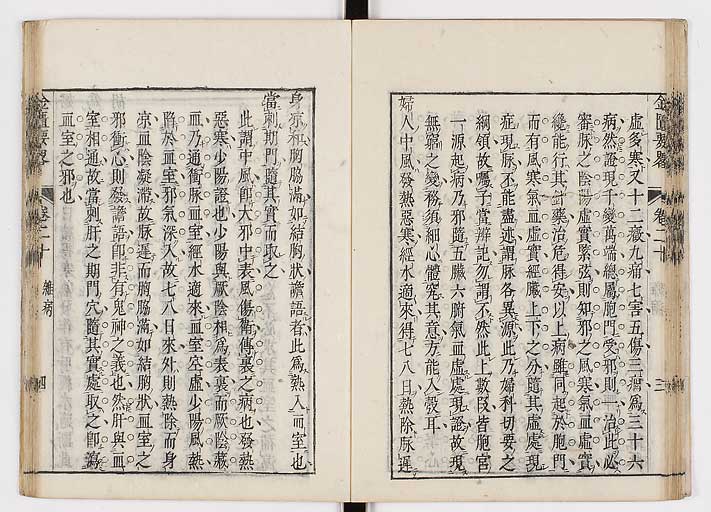 金匱要畧
卷二十
三
虛多寒又十二癥九痛七害五傷三痼爲三十六
病然證現千變萬端總屬胞門受邪則一治此必
審脉之陰陽虛實緊弦則知邪之風寒氣血虛實
纔能行其針藥治危得安以上病雖同起於胞門
而有風寒氣血虛實經臟上下之分隨其虛處現
症現脉不能盡述謂脉各異源此乃婦科切要之
綱領故囑子當辨記勿謂不然此上數段皆胞宮
一源起病乃邪隨五臟六腑氣血虛處現證故現
無窮之變務須細心體究其意方能入彀耳
婦人中風發熱惡寒經水適來得七八日熱除脉遲
身凉和胸脇滿如結胸狀譫語者此爲熱入血室也
當刺期門隨其實而取之
此謂中風卽大邪中表風傷衛傳裏之病也發熱
惡寒少陽證也少陽與厥陰相爲表裏而厥陰藏
血乃通衝脉血室經水適來血室空虛少陽風熱
陷於血室邪氣深入故七八日來外則熱除而身
凉血陰凝滯故脉遲而胸脇滿如結胸狀血室之
邪衝心則發譫語卽非有鬼神之義也然肝與血
室相通故當刺肝之期門穴隨其實處取之卽瀉
血室之邪也
金匱要畧
卷二十
雜病
四